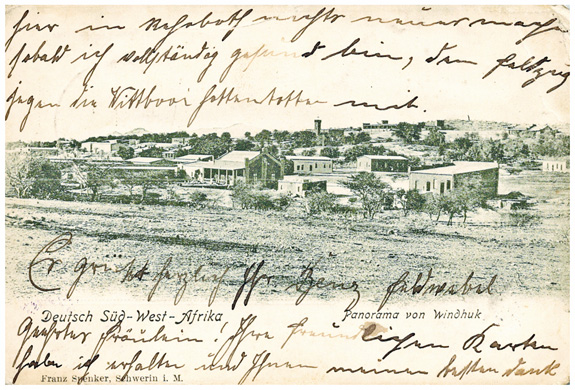 hier in Rehoboth nichts neuer mache
sobald ich vollständig gesund bin, den Feldzug
gegen die Wittboi Hottentotten mit.
Er grüßt herzlich Ihr Benz Feldwebel
Deutsch Süd-West-Afrika
Panorama von Windhuk
Geehrtes Fräulein! Ihre freundlichen Karten
habe ich erhalten und Ihnen meinen besten Dank
Franz Spenker, Schwerin i. M.